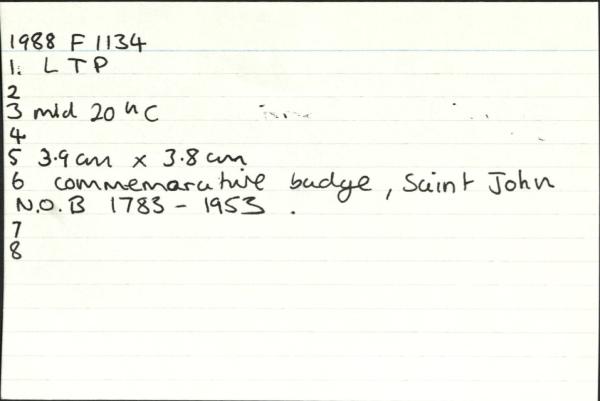 1988 F 1134
1. L T P
2
3 mid 20th C
4
5 3.9cm x 3.8cm
6 commemorative badge, Saint John
N.O.B 1783 - 1953 .
7
8